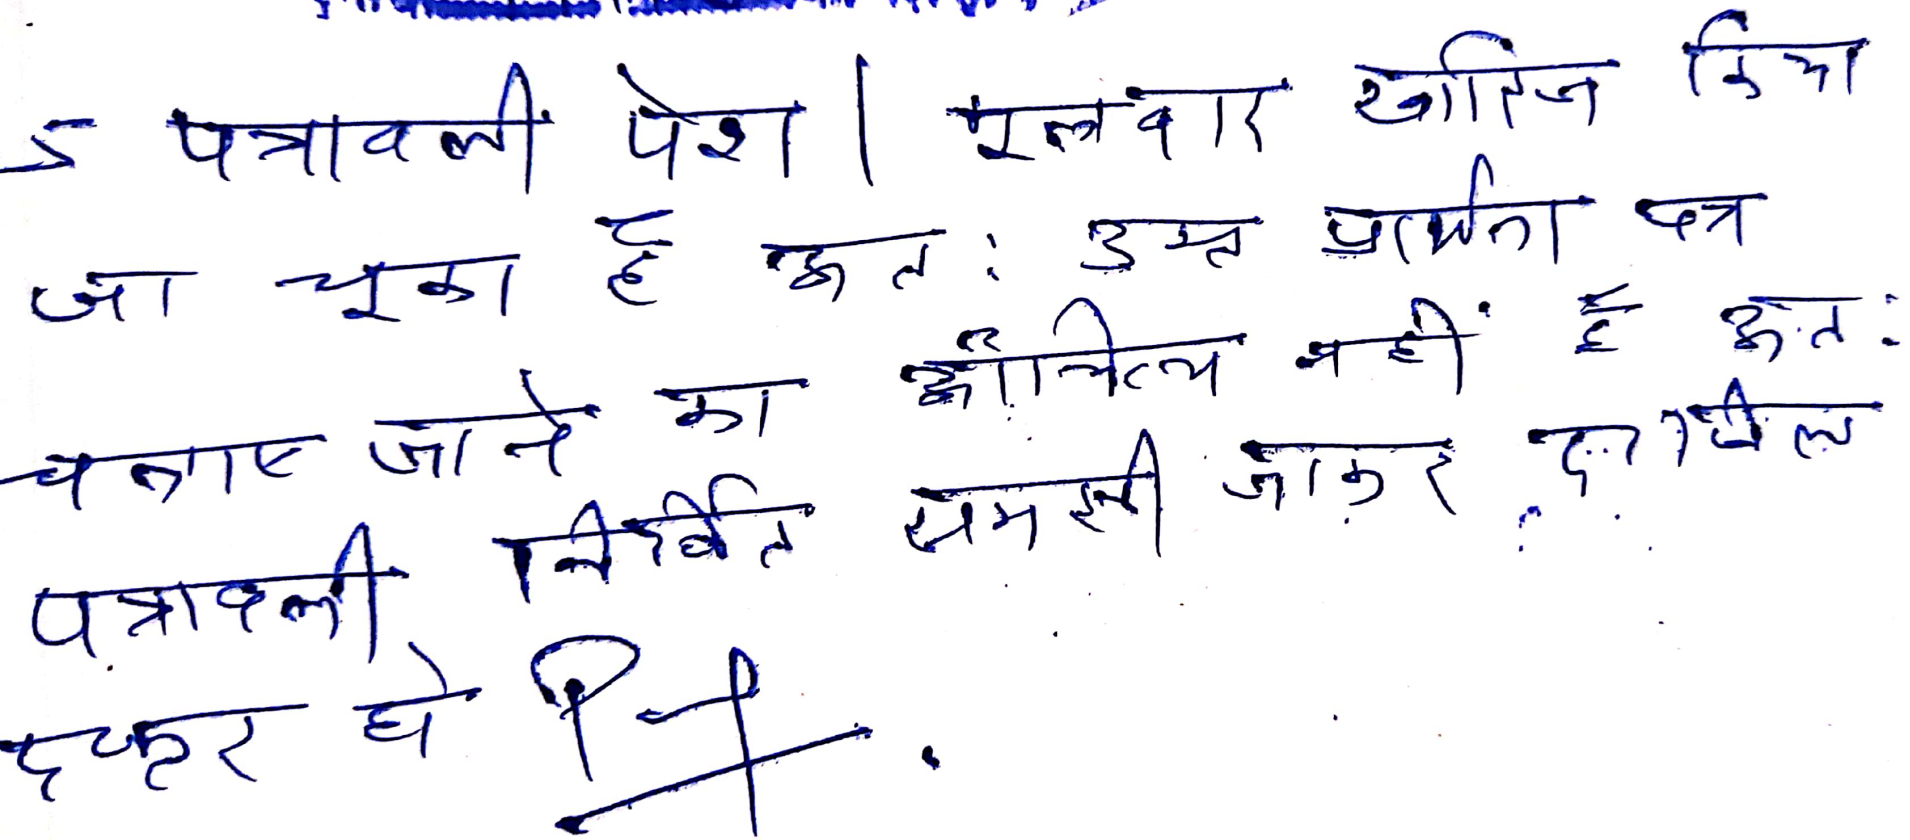 5 पत्रावली पेश। मूलवाद खारिज किया
जा चूका है अतः उक्त प्रार्थना पत्र
चलाए जाने का औचित्य नहीं है अतः
पत्रावली निर्णित समझी जाकर दाखिल
दफ्तर हो